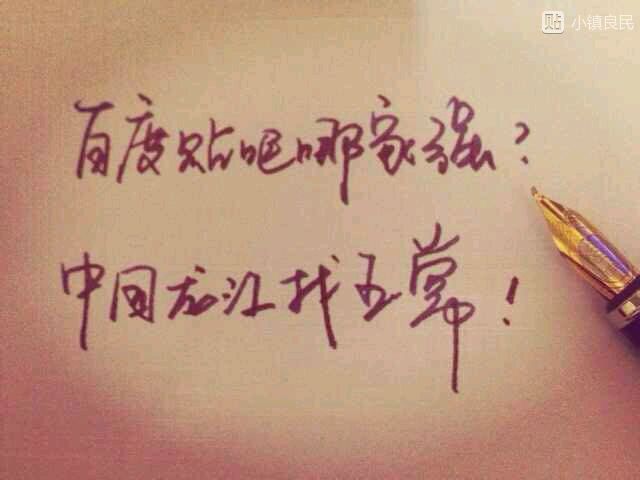 贴 小镇良民
百度贴吧哪家强?
中国龙江找五常!